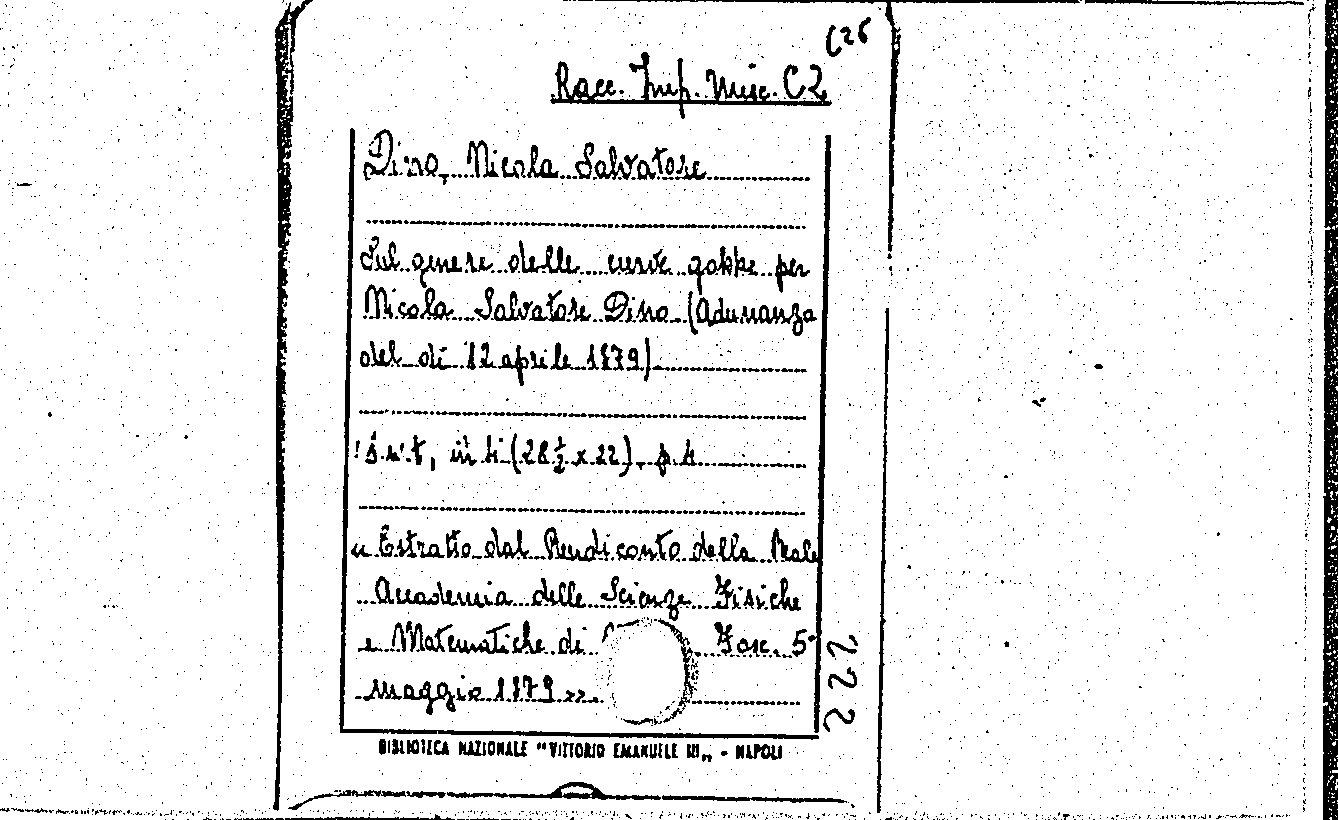 C26
Racc. Imp. Misc. C2
Dino, Nicola Salvatore
Sul genere delle curve gobbe per
Nicola Salvatore Dino (Adunanza
del dì 12 aprile 1879).
s.n.t, in 4 (28 ½ x 22). p. 4
« Estratto dal Rendiconto della Reale
Accademia delle Scienze Fisiche
e Matematiche di Fasc. 5°
maggio 1879 ».
222
BIBLIOTECA NAZIONALE "VITTORIO EMANUELE III„ - NAPOLI